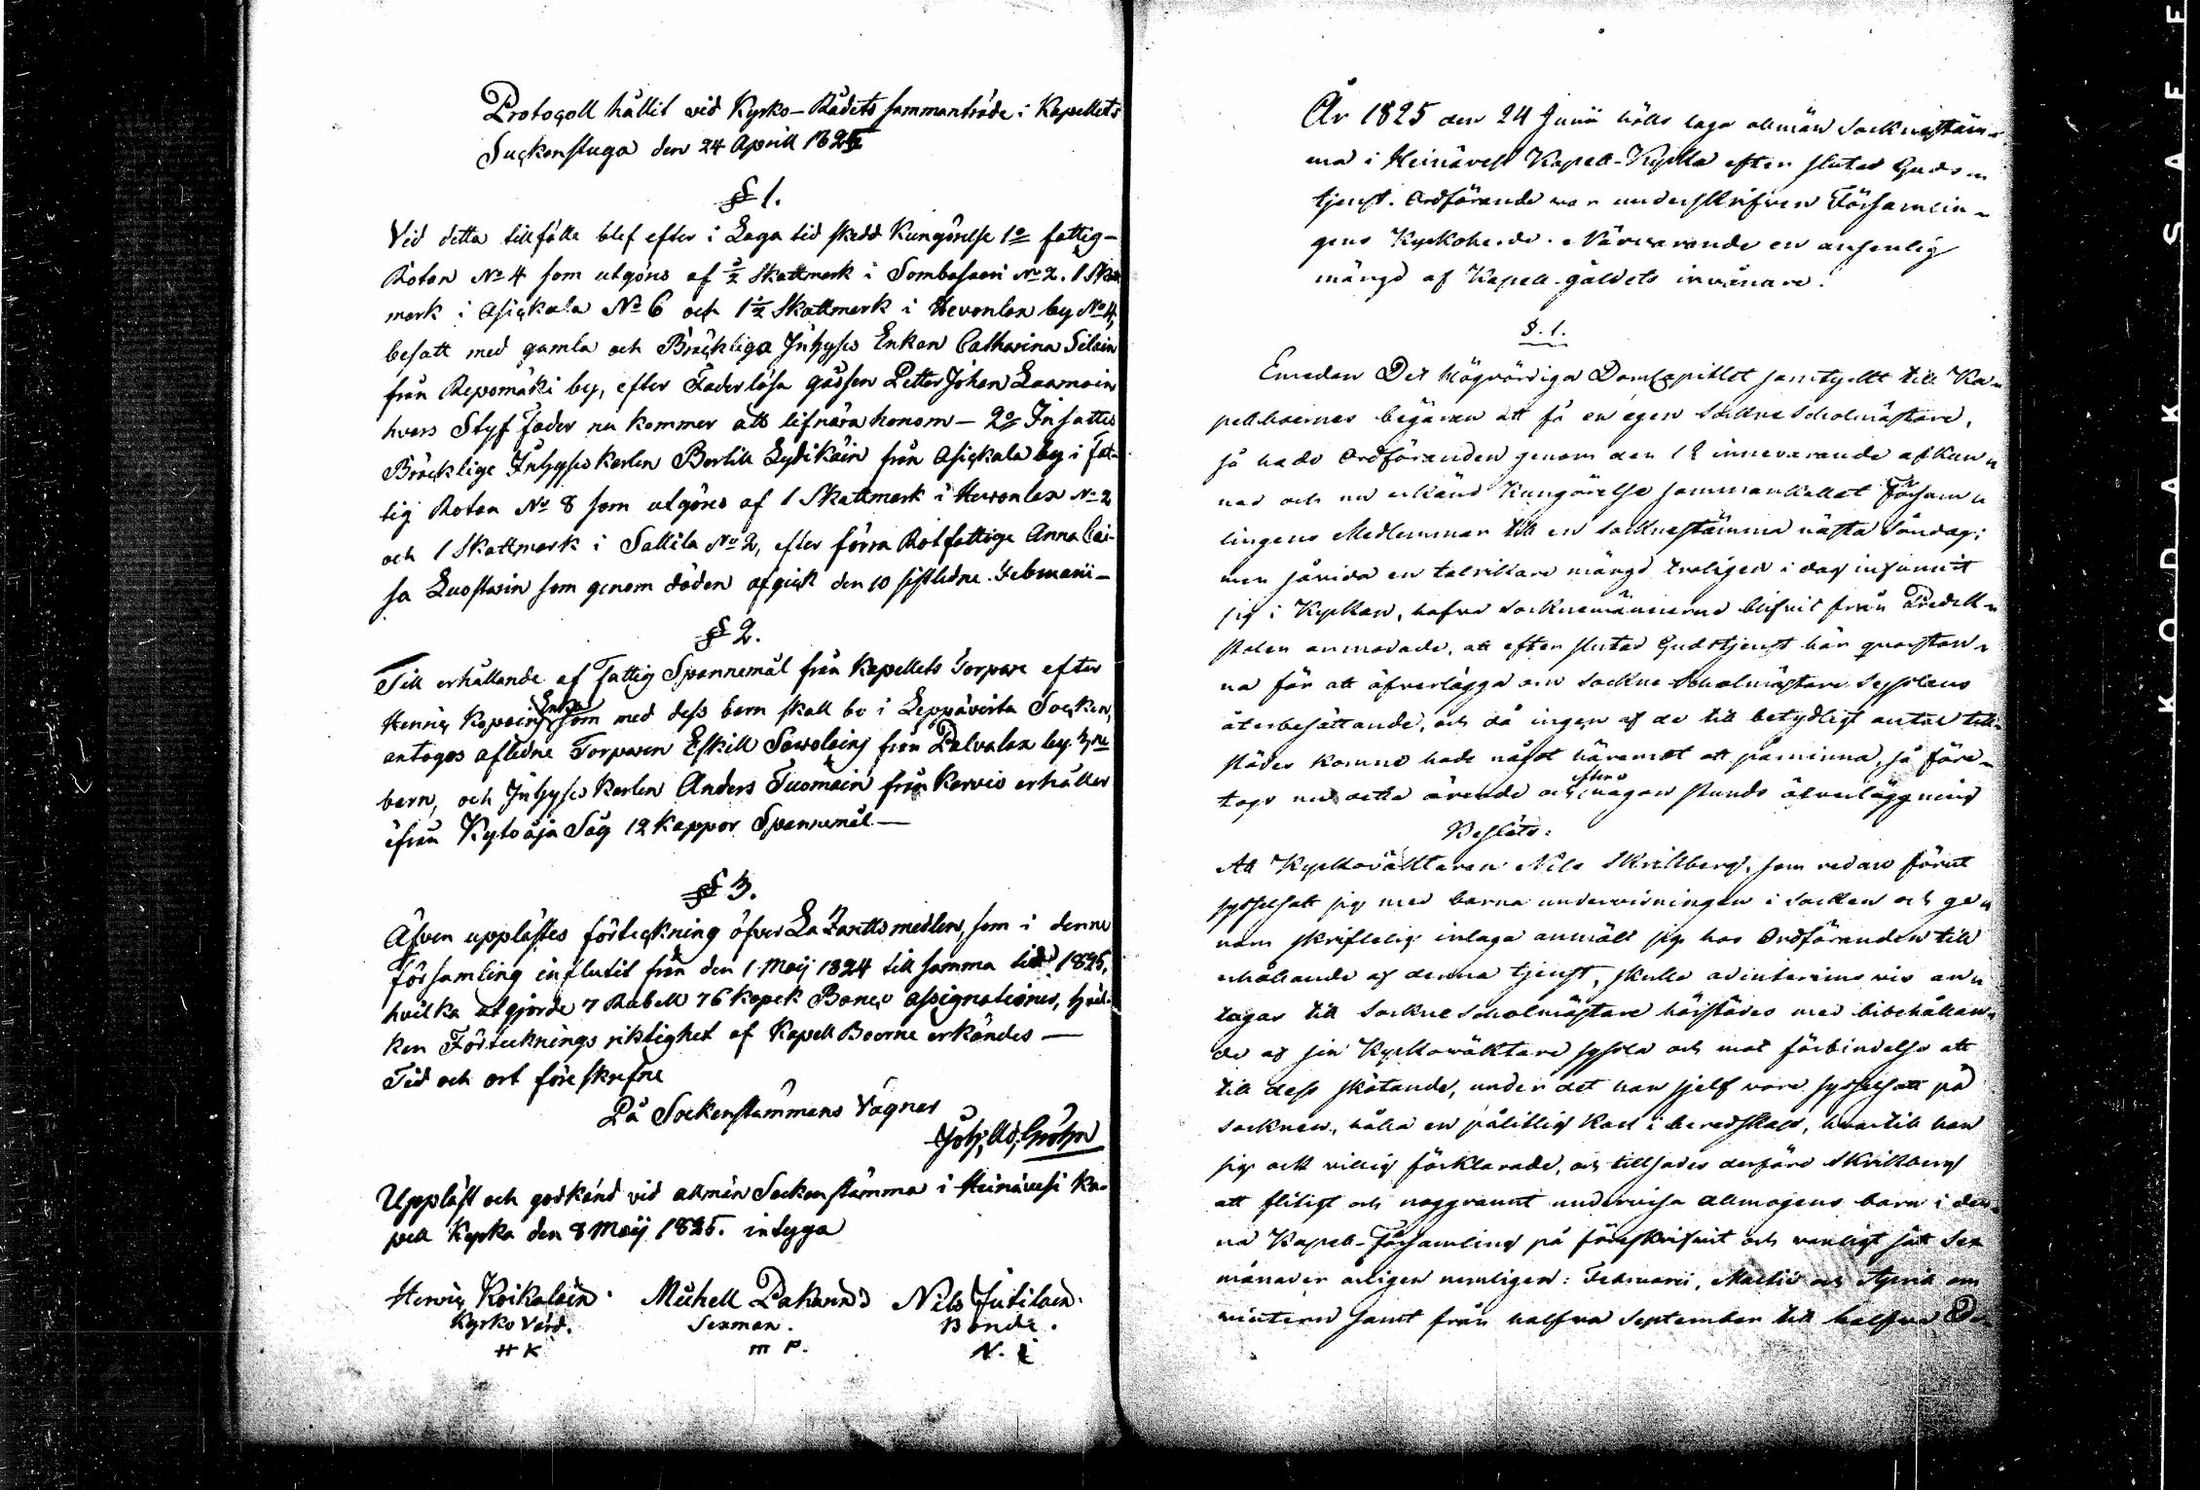 Protogoll hållit vid Kyrko-Rådets sammanträde i Kapellets
Suckenstuga den 24 Aprill 1825
§ 1.
Vid detta tillfälle blef efter i Laga tid skedd Kungörelse 1o fattig-
Rotan No 4 som utgöres af ½ Skattmark i Sombasaari No 2. 1 Skatt
mark i Asickala No 6 och 1½ Skattmark i Hevonlax by No 4,
besatt med gamla och Bräckliga Inhyses Enkan Catharina Silain
från Repomäki by, efter Faderlösa gåssen Petter Johan Laamain
hvars Styf Fader nu kommer att lifnära honom — 2o Insattes
Bräcklige Inhyses karlen Bertill Lydikäin från Asickala by i Fat-
tig Rotan No 8 som utgöres af 1 Skattmark i Hevonlax No 2
och 1 Skattmark i Sallila No 2, efter förra Rotfattige Anna Cai-
sa Luostarin som genom döden afgick den 10 sistledne Februarii —
§ 2.
Till erhållande af Fattig Spannemål från Kapellets Torpare efter
Henric Kopoins Enka som med dess barn skall bo i Leppävirta Socken,
antogos afledne Torparen Eskill Sawolains från Palvalax by 3ne
barn, och Inhyses karlen Anders Tuomain från Kervis erhåller
ifrån Kytöoja Såg 12 kappor Spannemål —
§ 3.
Äfven upplästes förteckning öfver Lazaretts medlen, som i denne
församling influtit från den 1 Maij 1824 till samma tid 1825,
hvilka utgjorde 7 Rubell 76 kopek Banco Assignationer, hvil-
ken Förtecknings riktighet af Kapell Boerne erkändes —
Tid och ort föreskrefne
På Sockenstämmans Vägnar
Joh. Ad. Gröhn
Uppläst och godkänd vid allmän Sockenstämma i Heinävesi Ka-
pell Kyrka den 8 Maij 1825. intyga
Henric Koikalain. Michell Pakarin Nils Jutilain.
Kyrko Värd. Sexman. Bonde.
H K m P. N. I
År 1825 den 24 Junii hölls laga allmän Socknestäm-
ma i Heinävesi Kapell-Kyrka efter slutad Guds-
tjenst. Ordförande var underskrifven Församlin-
gens Kyrkoherde. Närvarande en ansenlig
mängd af Kapell-gäldets invånare.
§. 1.
Emedan Det Högvördiga Domcapitlet samtyckt till Ka-
pellboernes begäran att få en egen Sockne Scholmästare,
så hade Ordföranden genom den 12 innevarande afkun-
nad och nu erkänd Kungörelse sammankallat Församl-
lingens Medlemmar till en Socknestämma nästa Söndag;
men såvida en talrikare mängd troligen i dag infunnit
sig i Kyrkan, hafva Socknemännerne blifvit från Predik-
stolen anmodade, att efter slutad Gudstjenst här quarstan-
na för att öfverlägga om Sockne-Scholmästare Sysslans
återbesättande, och då ingen af de till betydligt antal till-
städes komne hade något häremot att påminna, så före-
togs nu detta ärende och efter någon stunds öfverläggning
Beslöts:
Att Kyrkoväktaren Nils Skrillberg, som redan förut
sysselsatt sig med barna undervisningen i Socken och ge-
nom skriftelig inlaga anmält sig hos Ordföranden till
erhållande af denna tjenst, skulle adinterims vis an-
tagas till Sockne Scholmästare härstädes med bibehållan-
de af sin Kyrkowäktare syssla och mot förbindelse att
till dess skötande, under det han sjelf vore sysselsatt på
socknen, hålla en pålitlig Karl i beredskap, hvartill han
sig ock villig förklarade, och tillsades derföre Skrillberg
att flitigt och noggrannt undervisa Allmogens barn i den-
na Kapell-Församling på föreskrifvit och vanligt sätt Sex
månader årligen nemligen: Februarii, Martii och April om
vintern samt från halfva September till halfva De-